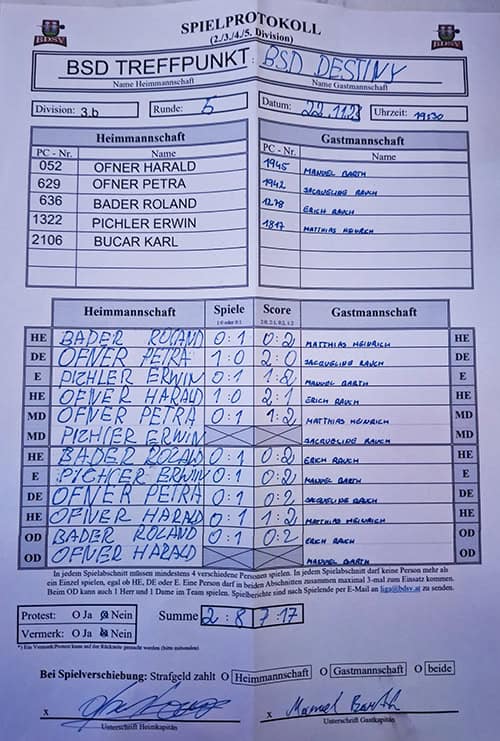 SPIELPROTOKOLL
(2./3./4./5. Division)
BDSV
BDSV
BSD TREFFPUNKT : BSD DESTINY
Name Heimmannschaft Name Gastmannschaft
Division: 3.b Runde: 5 Datum: 22.11.23 Uhrzeit: 19:30
Heimmannschaft Gastmannschaft
PC - Nr. Name PC - Nr. Name
052 OFNER HARALD 1945 MANUEL BARTH
629 OFNER PETRA 1942 JACQUELINE RAUCH
636 BADER ROLAND 1278 ERICH RAUCH
1322 PICHLER ERWIN 1817 MATTHIAS HEINRICH
2106 BUCAR KARL
Heimmannschaft Spiele Score Gastmannschaft
1:0 oder 0:1 2:0, 2:1, 0:2, 1:2
HE BADER ROLAND 0:1 0:2 MATTHIAS HEINRICH HE
DE OFNER PETRA 1:0 2:0 JACQUELINE RAUCH DE
E PICHLER ERWIN 0:1 1:2 MANUEL BARTH E
HE OFNER HARALD 1:0 2:1 ERICH RAUCH HE
MD OFNER PETRA 0:1 1:2 MATTHIAS HEINRICH MD
MD PICHLER ERWIN JACQUELINE RAUCH MD
HE BADER ROLAND 0:1 0:2 ERICH RAUCH HE
E PICHLER ERWIN 0:1 0:2 MANUEL BARTH E
DE OFNER PETRA 0:1 0:2 JACQUELINE RAUCH DE
HE OFNER HARALD 0:1 1:2 MATTHIAS HEINRICH HE
OD BADER ROLAND 0:1 0:2 ERICH RAUCH OD
OD OFNER HARALD MANUEL BARTH OD
In jedem Spielabschnitt müssen mindestens 4 verschiedene Personen spielen. In jedem Spielabschnitt darf keine Person mehr als
ein Einzel spielen, egal ob HE, DE oder E. Eine Person darf in beiden Abschnitten zusammen maximal 3-mal zum Einsatz kommen.
Beim OD kann auch 1 Herr und 1 Dame im Team spielen. Spielberichte sind nach Spielende per E-Mail an liga@bdsv.at zu senden.
Protest: O Ja O Nein Summe 2 : 8 7 : 17
Vermerk: O Ja O Nein
*) Ein Vermerk/Protest kann auf der Rückseite gemacht werden (bitte ankreuzen)
Bei Spielverschiebung: Strafgeld zahlt O Heimmannschaft O Gastmannschaft O beide
x x Manuel Barth
Unterschrift Heimkapitän Unterschrift Gastkapitän